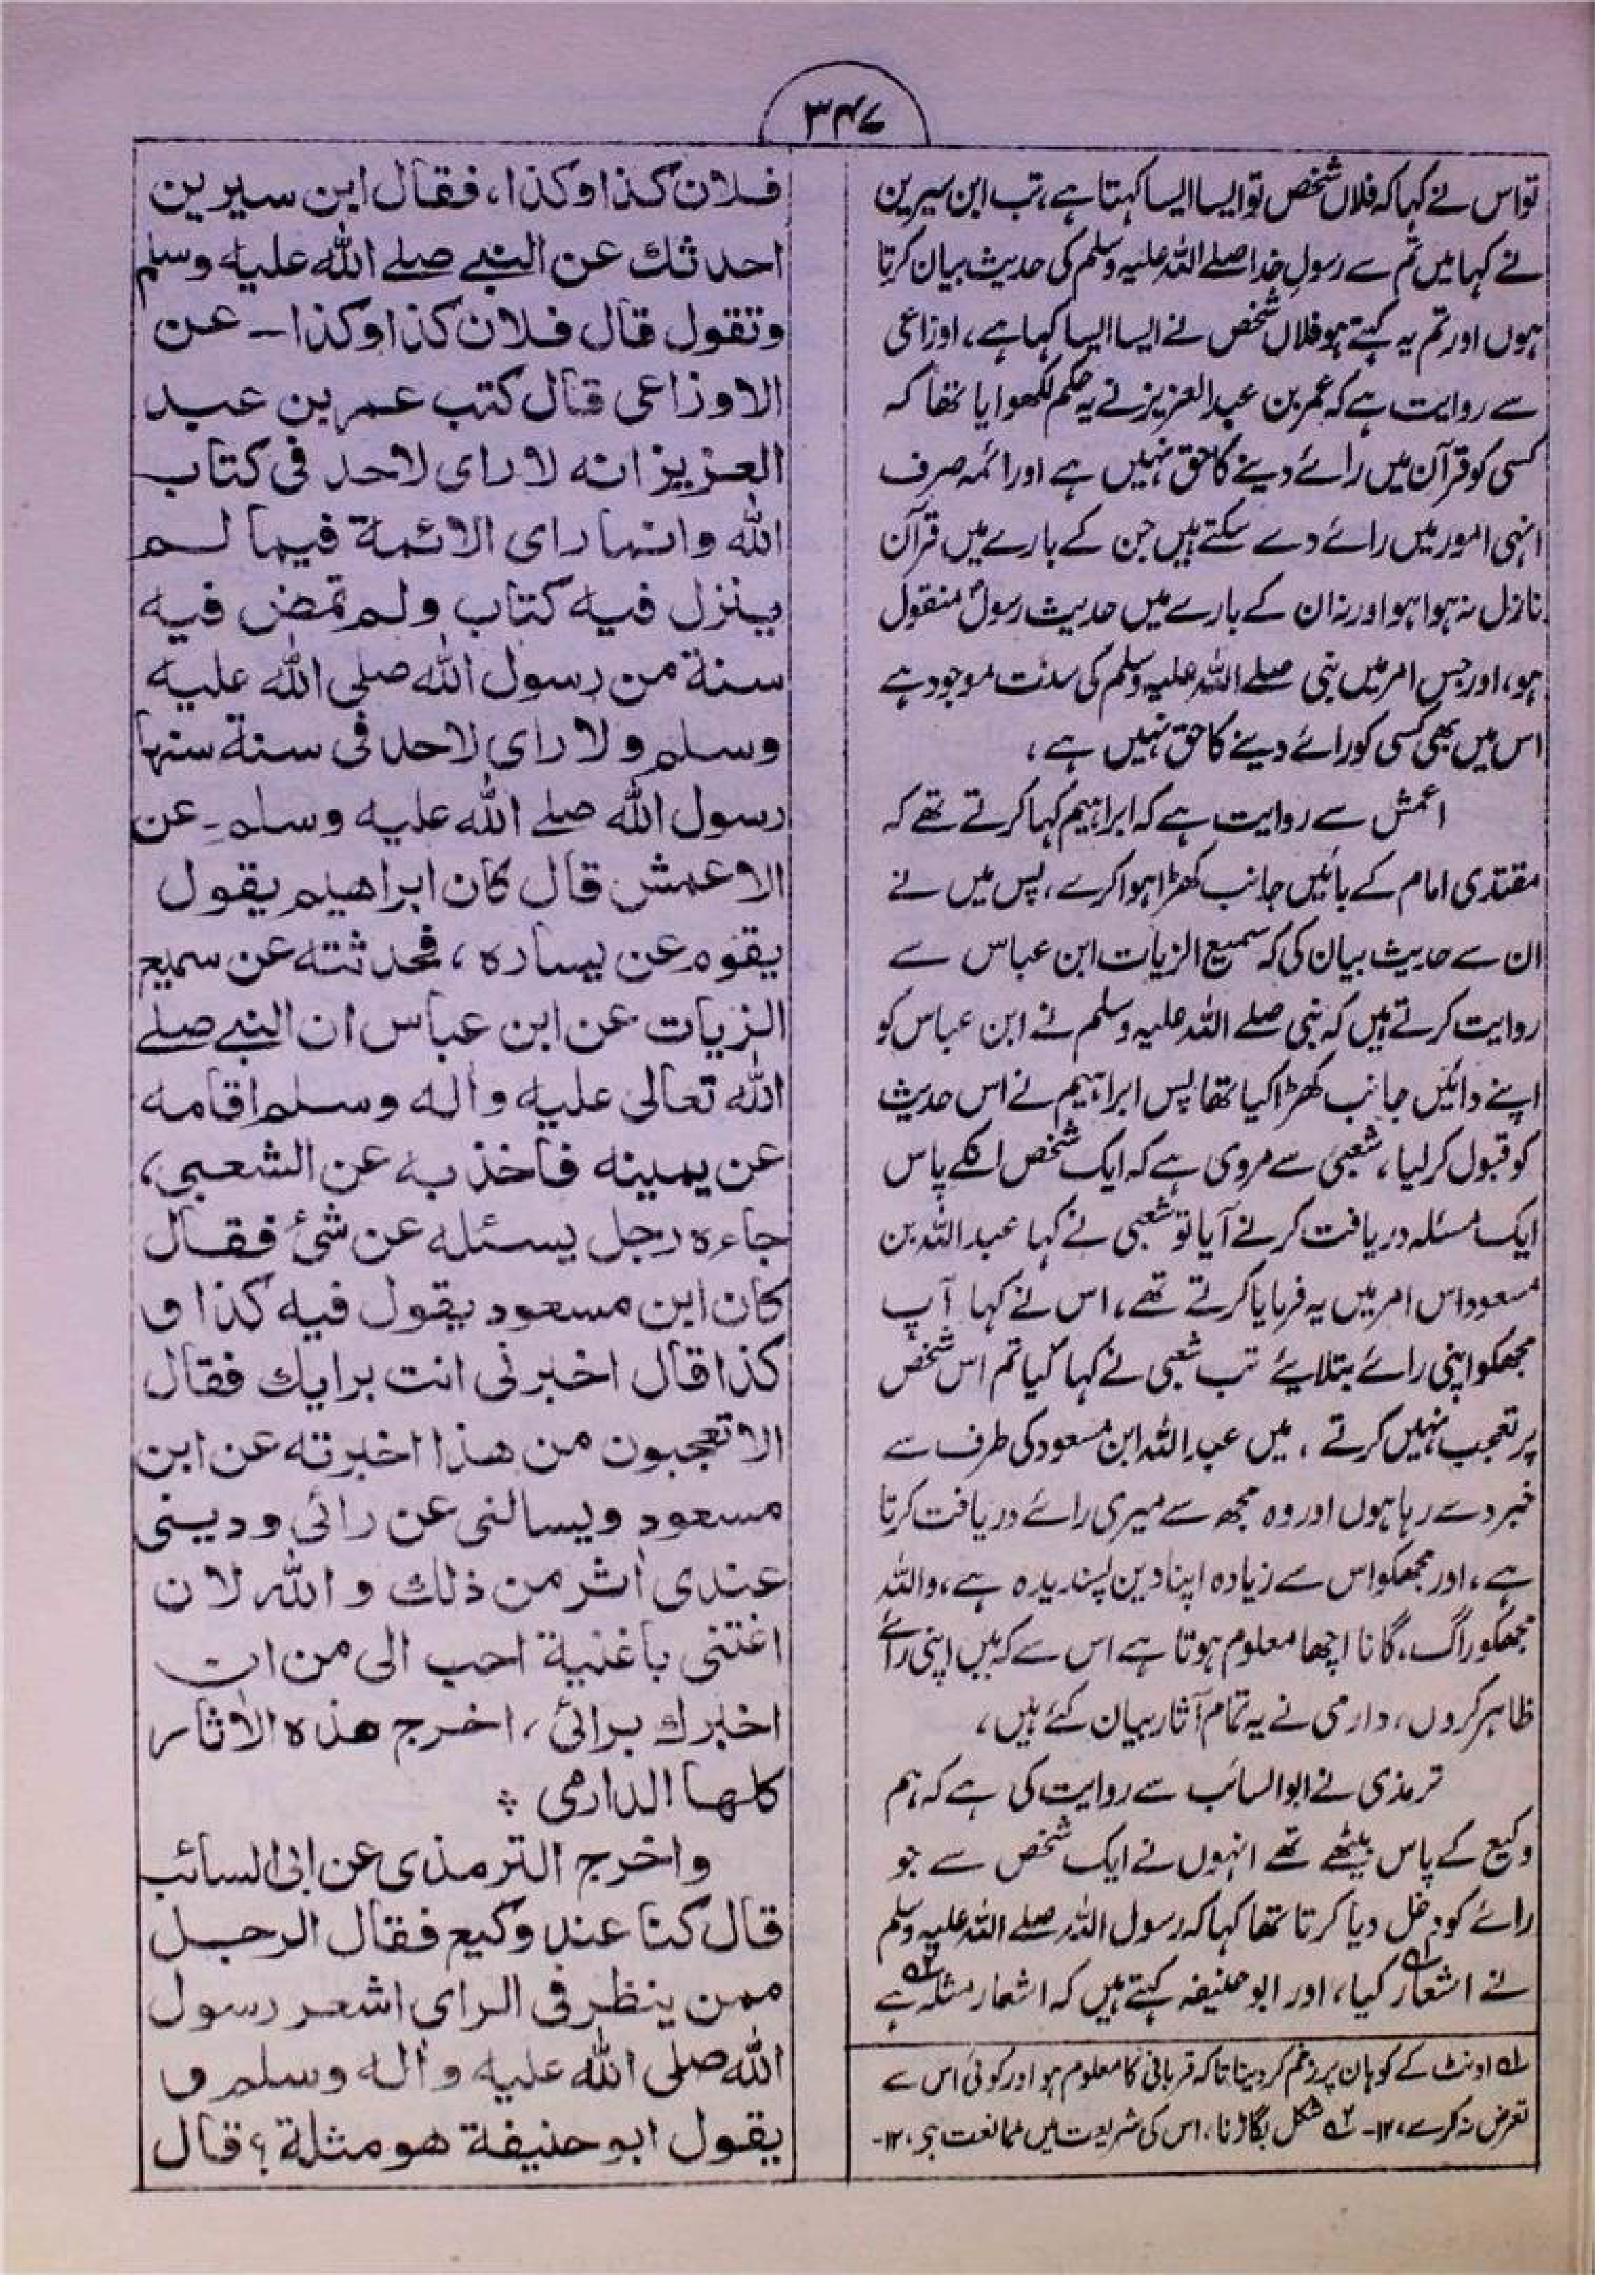 ۳۴۷
تو اس نے کہا کہ فلاں شخص تو ایسا ایسا کہتا ہے، تب ابن سیرین
نے کہا میں تم سے رسول خدا صلے اللہ علیہ وسلم کی حدیث بیان کرتا
ہوں اور تم یہ کہتے ہو فلاں شخص نے ایسا ایسا کہا ہے، اوزاعی
سے روایت ہے کہ عمر بن عبدالعزیز نے یہ حکم لکھوایا تھا کہ
کسی کو قرآن میں رائے دینے کا حق نہیں ہے اور ائمہ صرف
انہی امور میں رائے دے سکتے ہیں جن کے بارے میں قرآن
نازل نہ ہوا ہو اور نہ ان کے بارے میں حدیث رسولؐ منقول
ہو، اور جس امر میں نبی صلے اللہ علیہ وسلم کی سنت موجود ہے
اس میں بھی کسی کو رائے دینے کا حق نہیں ہے،
اعمش سے روایت ہے کہ ابراہیم کہا کرتے تھے کہ
مقتدی امام کے بائیں جانب کھڑا ہوا کرے، پس میں نے
ان سے حدیث بیان کی کہ سمیع الزیات ابن عباس سے
روایت کرتے ہیں کہ نبی صلے اللہ علیہ وسلم نے ابن عباس کو
اپنے دائیں جانب کھڑا کیا تھا پس ابراہیم نے اس حدیث
کو قبول کر لیا، شعبی سے مروی ہے کہ ایک شخص انکے پاس
ایک مسئلہ دریافت کرنے آیا تو شعبی نے کہا عبداللہ بن
مسعود اس امر میں یہ فرمایا کرتے تھے، اس نے کہا آپ
مجھکو اپنی رائے بتلایئے تب شعبی نے کہا کیا تم اس شخص
پر تعجب نہیں کرتے، میں عبداللہ ابن مسعود کی طرف سے
خبر دے رہا ہوں اور وہ مجھ سے میری رائے دریافت کرتا
ہے، اور مجھکو اس سے زیادہ اپنا دین پسندیدہ ہے، واللہ
مجھکو راگ، گانا اچھا معلوم ہوتا ہے اس سے کہ میں اپنی رائے
ظاہر کردوں، دارمی نے یہ تمام آثار بیان کئے ہیں،
ترمذی نے ابو السائب سے روایت کی ہے کہ ہم
وکیع کے پاس بیٹھے تھے انہوں نے ایک شخص سے جو
رائے کو دخل دیا کرتا تھا کہا کہ رسول اللہ صلے اللہ علیہ وسلم
نے اشعار۱ کیا، اور ابو حنیفہ کہتے ہیں کہ اشعار مثلہ۲ ہے
۱ اونٹ کے کوہان پر زخم کر دینا تاکہ قربانی کا معلوم ہو اور کوئی اس سے
تعرض نہ کرے، ۱۲- ۲ شکل بگاڑنا، اس کی شریعت میں ممانعت ہے، ۱۲-
فلان كذا وكذا، فقال ابن سيرين
احدثك عن النبي صلے الله عليه وسلم
وتقول قال فلان كذا وكذا ـ عن
الاوزاعى قال كتب عمر بن عبد
العزيز انه لا راى لاحد فى كتاب
الله وانما راى الائمة فيما لم
ينزل فيه كتاب ولم تمض فيه
سنة من رسول الله صلى الله عليه
وسلم ولا راى لاحد فى سنة سنها
رسول الله صلے الله عليه وسلم ـ عن
الاعمش قال كان ابراهيم يقول
يقوم عن يساره، فحدثته عن سميع
الزيات عن ابن عباس ان النبي صلے
الله تعالى عليه واله وسلم اقامه
عن يمينه فاخذ به عن الشعبي،
جاءه رجل يسئله عن شئ فقال
كان ابن مسعود يقول فيه كذا و
كذا قال اخبرنى انت برايك فقال
الا تعجبون من هذا اخبرته عن ابن
مسعود ويسالنى عن رائى ودينى
عندى اٰثر من ذلك والله لان
اغتنى باغنية احب الى من ان
اخبرك برائى، اخرج هذه الاثار
كلها الدارمى ؞
واخرج الترمذى عن ابى السائب
قال كنا عند وكيع فقال الرجل
ممن ينظر فى الراى اشعر رسول
الله صلى الله عليه واٰله وسلم و
يقول ابو حنيفة هو مثلة؟ قال